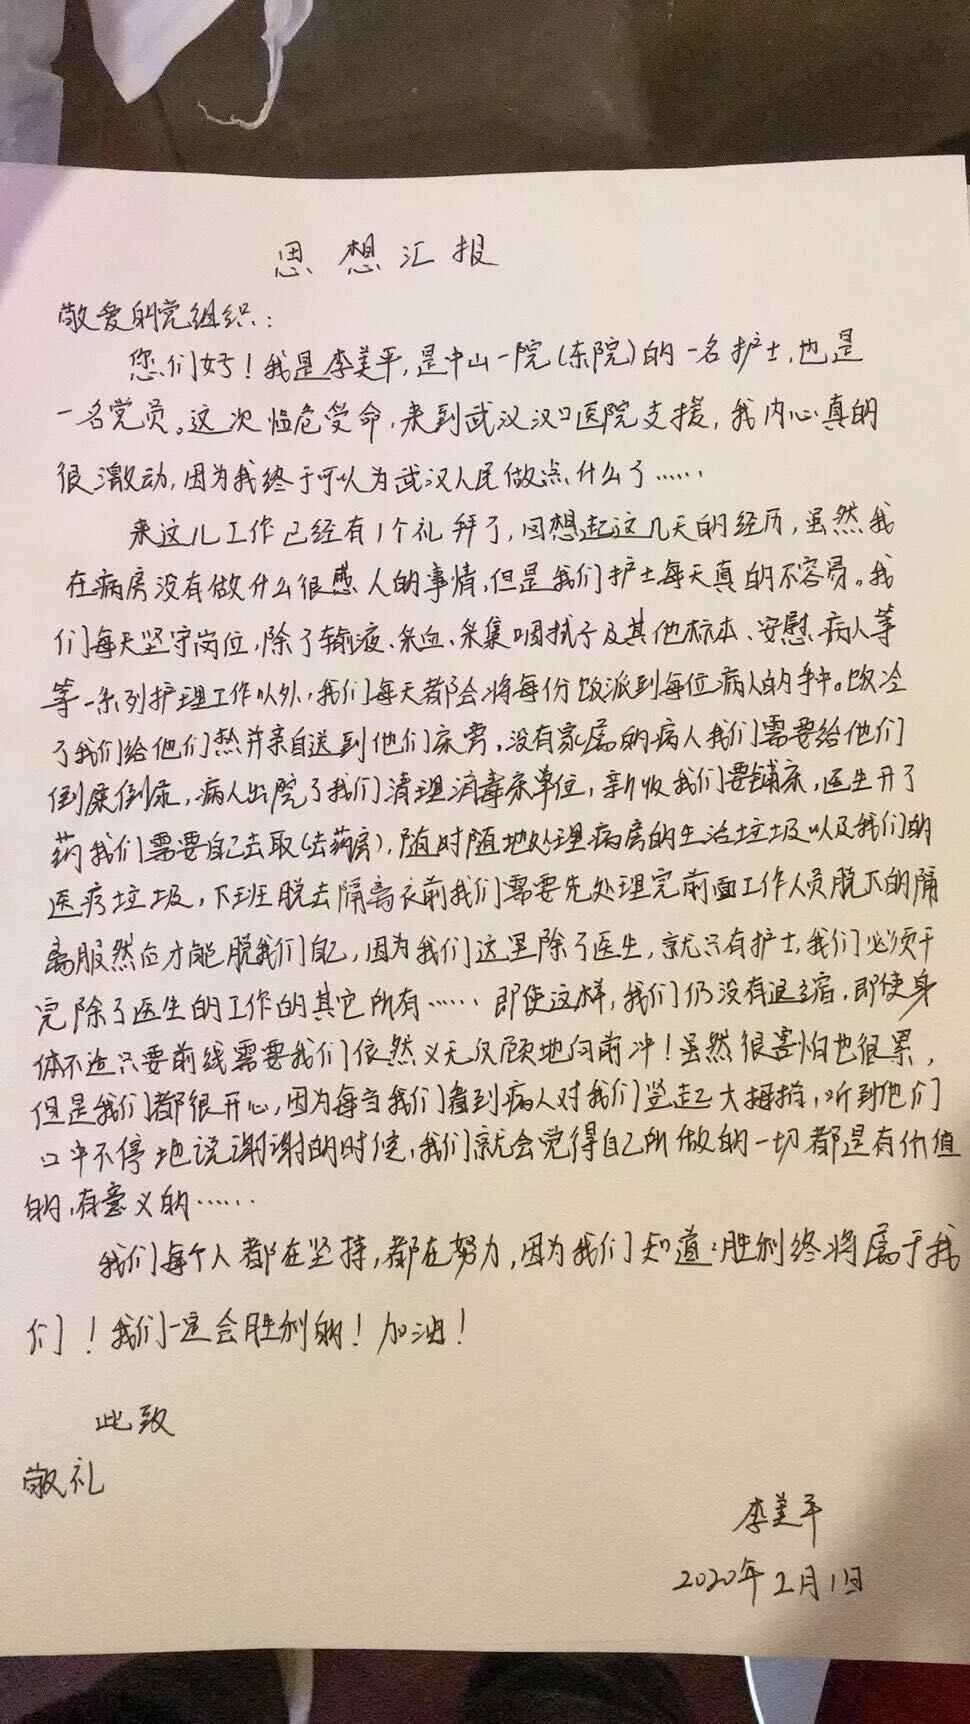 思想汇报
敬爱的党组织：
您们好！我是李美平，是中山一院（东院）的一名护士，也是
一名党员。这次临危受命，来到武汉汉口医院支援，我内心真的
很激动，因为我终于可以为武汉人民做点什么了……
来这儿工作已经有1个礼拜了，回想起这几天的经历，虽然我
在病房没有做什么很感人的事情，但是我们护士每天真的不容易。我
们每天坚守岗位，除了输液、采血、采集咽拭子及其他标本、安慰病人等
等一系列护理工作以外，我们每天都会将每份饭派到每位病人的手中。饭冷
了我们给他们热并亲自送到他们床旁，没有家属的病人我们需要给他们
倒屎倒尿，病人出院了我们清理消毒床单位，新收我们要铺床，医生开了
药我们需要自己去取（去药房），随时随地处理病房的生活垃圾以及我们的
医疗垃圾，下班脱去隔离衣前我们需要先处理完前面工作人员脱下的隔
离服然后才能脱我们自己，因为我们这里除了医生，就只有护士，我们必须干
完除了医生的工作的其它所有……即使这样，我们仍没有退缩，即使身
体不适只要前线需要我们依然义无反顾地向前冲！虽然很害怕也很累，
但是我们都很开心，因为每当我们看到病人对我们竖起大拇指，听到他们
口中不停地说谢谢的时候，我们就会觉得自己所做的一切都是有价值
的，有意义的……
我们每个人都在坚持，都在努力，因为我们知道：胜利终将属于我
们！我们一定会胜利的！加油！
此致
敬礼
李美平
2020年2月1日